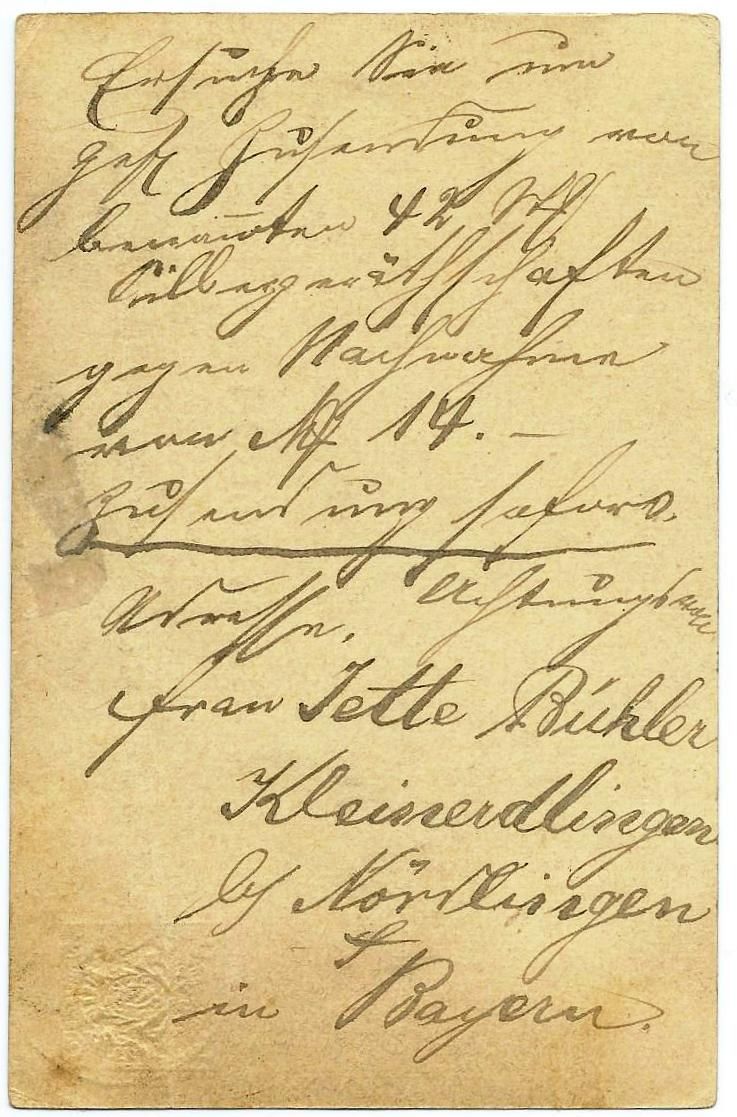 Ersuche Sie um
gefl Zusendung von
benannten 42 St
Silbergeräthschaften
gegen Nachnahme
von M 14. –
Zusendung sofort.
Adresse. Achtungsvoll
Frau Jette Bühler
Kleinerdlingen
b/ Nördlingen
in Bayern.